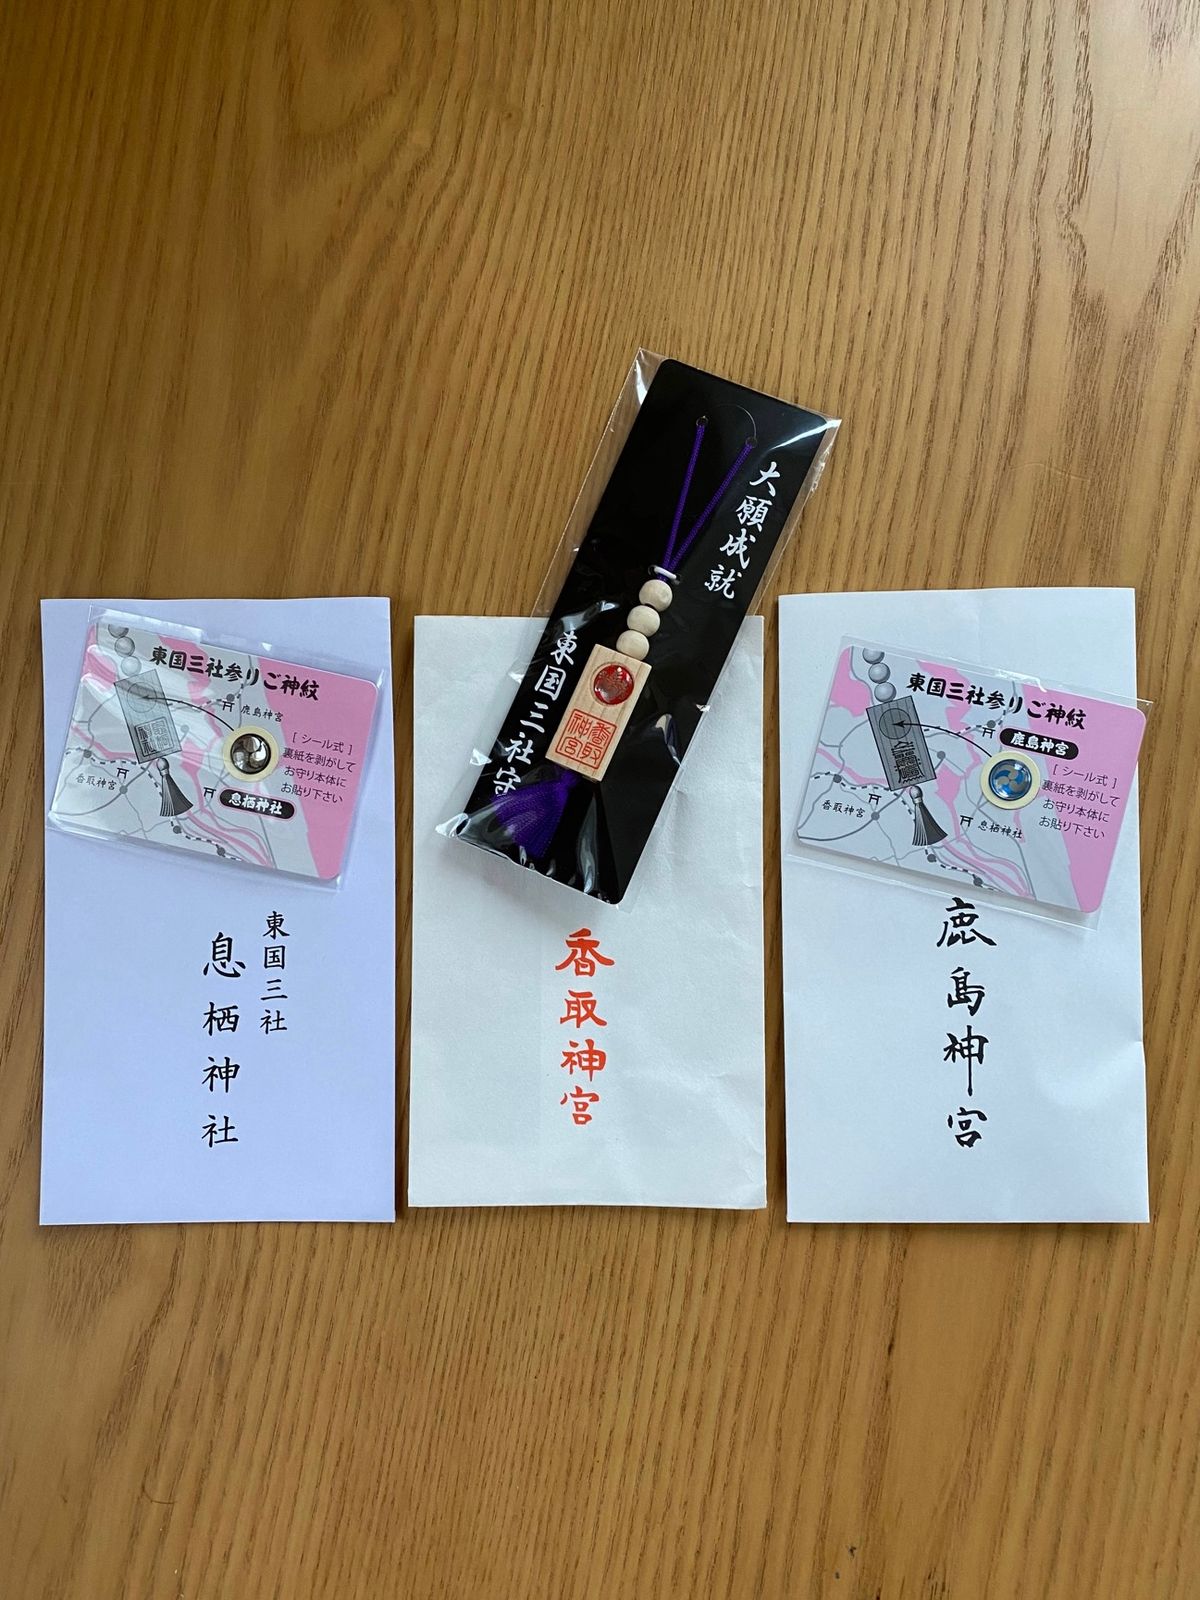 東国三社参りご神紋
鹿島神宮
[ シール式 ]
裏紙を剥がして
お守り本体に
お貼り下さい
香取神宮
息栖神社
東国三社
息栖神社
大願成就
東国三社守
香取神宮
香取神宮
東国三社参りご神紋
鹿島神宮
[ シール式 ]
裏紙を剥がして
お守り本体に
お貼り下さい
香取神宮
息栖神社
鹿島神宮